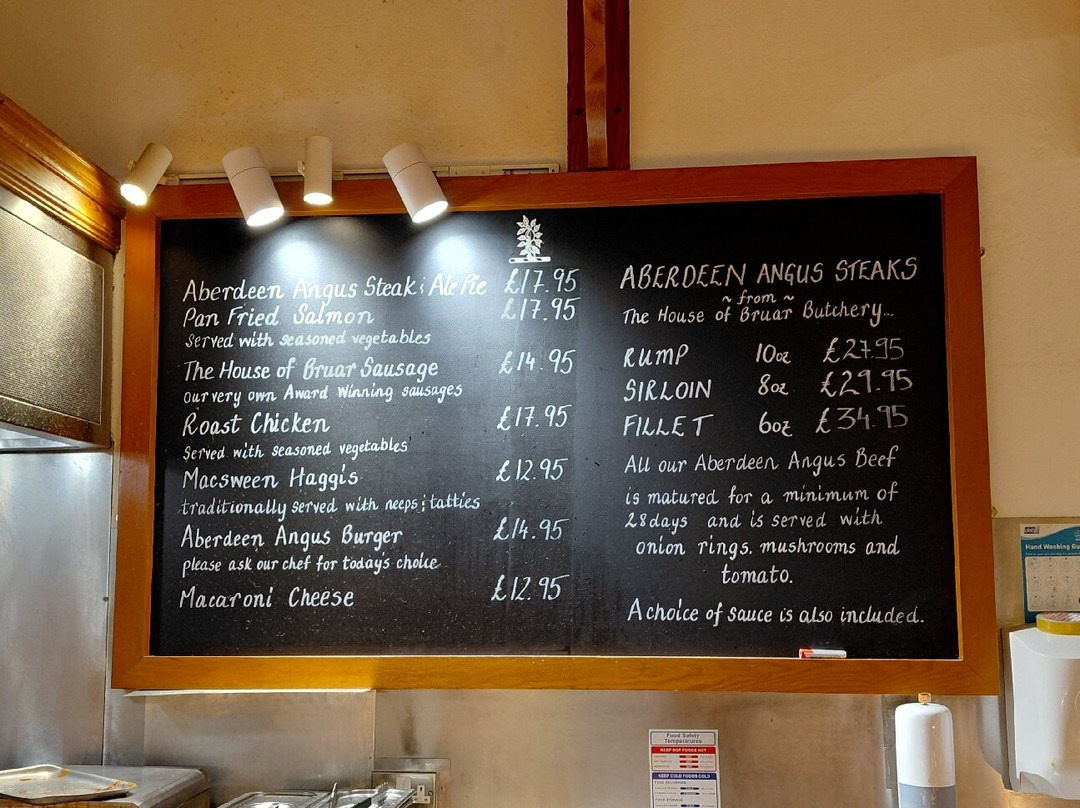 Aberdeen Angus Steak & Ale Pie £17.95
Pan Fried Salmon £17.95
Served with seasoned vegetables
The House of Bruar Sausage £14.95
our very own Award Winning sausages
Roast Chicken £17.95
Served with seasoned vegetables
Macsween Haggis £12.95
traditionally served with neeps & tatties
Aberdeen Angus Burger £14.95
please ask our chef for todays choice
Macaroni Cheese £12.95
ABERDEEN ANGUS STEAKS
~ from ~
The House of Bruar Butchery...
RUMP 10oz £27.95
SIRLOIN 8oz £29.95
FILLET 6oz £34.95
All our Aberdeen Angus Beef
is matured for a minimum of
28days and is served with
onion rings, mushrooms and
tomato.
A choice of sauce is also included.
Hand Washing
Food Safety
Temperatures
KEEP HOT FOODS HOT
KEEP COLD FOODS COLD